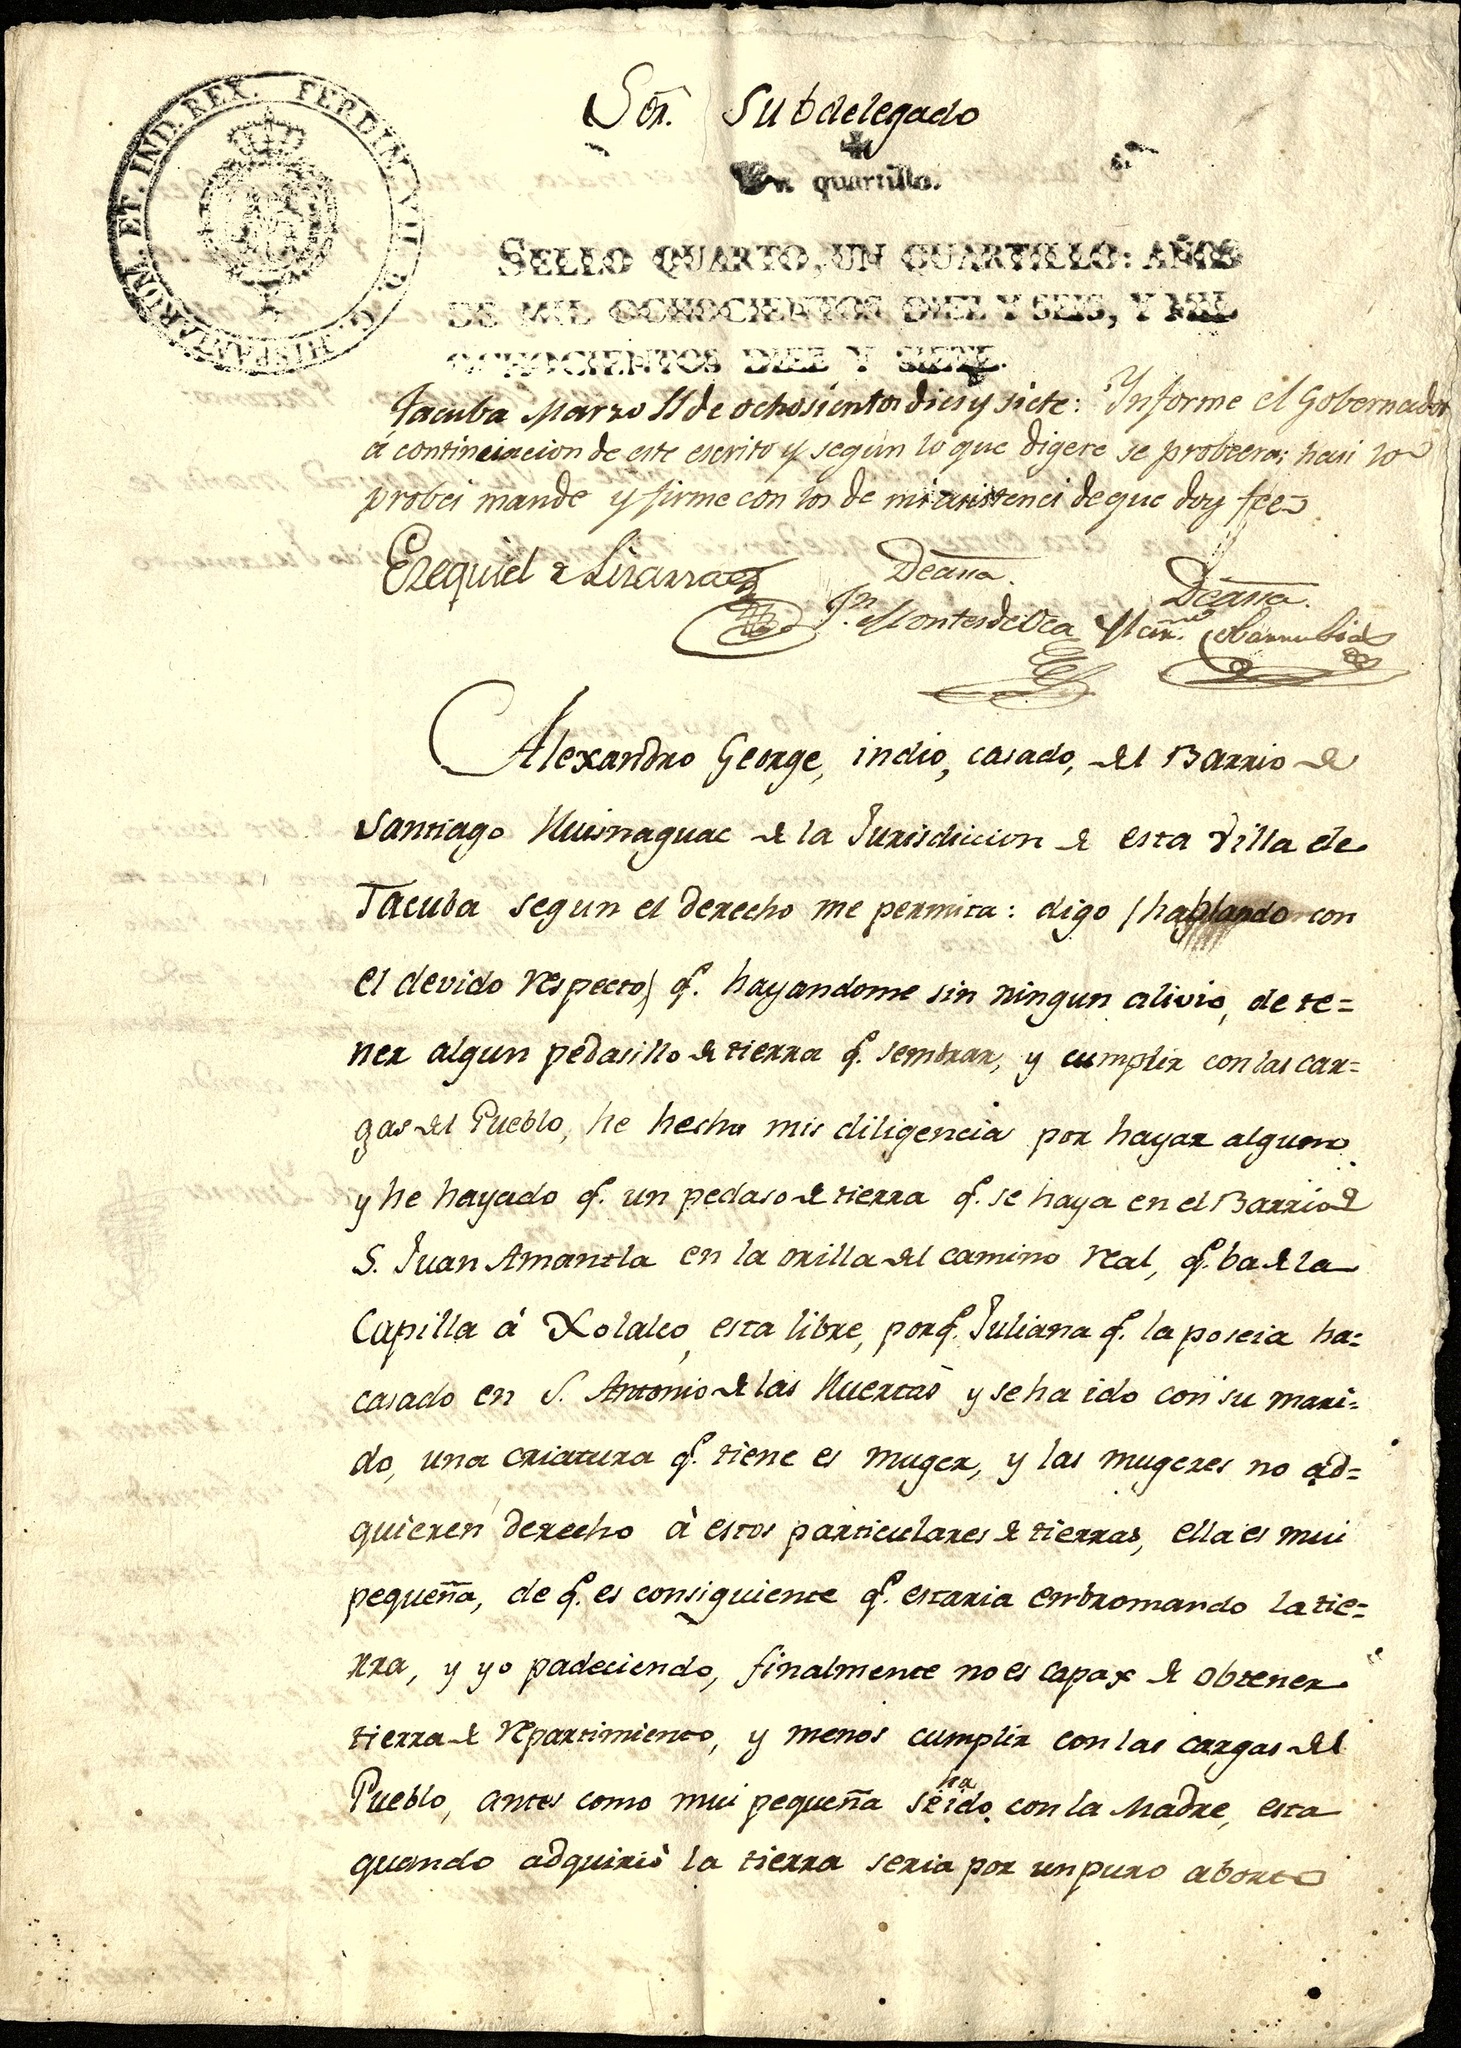 HISPANIARUM. ET. IND. REX. FERDIN. VII. D. G.
Sōr. Subdelegado
Un quartillo.
SELLO QUARTO, UN QUARTILLO: AÑOS
DE MIL OCHOCIENTOS DIEZ Y SEIS, Y MIL
OCHOCIENTOS DIEZ Y SIETE.
Tacuba Marzo 11 de ochosientos dies y siete: Ynforme el Gobernador
á continuacion de este escrito y según lo que digere se probeera; hasi lo
probei mande y firme con los de mi asistenci de que doy fee
Ezequiel
De assa. De assa.
Jn. Montes de Oca
Alexandro George, indio, casado, del Barrio de
Santiago Huisnaguac de la Jurisdiccion de esta Villa de
Tacuba segun el derecho me permita: digo /hablando con
el devido respecto/ q.e hayandome sin ningun alivio, de te=
ner algun pedasillo de tierra q.e sembrar, y cumplir con las car=
gas del Pueblo, he hecho mis diligencia por hayar alguno
y he hayado q.e un pedaso de tierra q.e se haya en el Barrio de
S. Juan Amantla en la orilla del camino real, q.e ba de la
Capilla á Xolalco, esta libre, porq.e Juliana q.e la poseia ha=
casado en S. Antonio de las Huertas y se ha ido con su mari=
do, una criatura q.e tiene es muger, y las mugeres no ád=
quieren derecho á estos particulares de tierras, ella es mui
pequeña, de q.e es consiguiente q.e estaria embromando la tie=
rra, y yo padeciendo, finalmente no es capax de obtener
tierra de repartimiento, y menos cumplir con las cargas del
Pueblo, antes como mui pequeña se ha ido con la Madre, esta
quando adquirió la tierra seria por un puro aborto